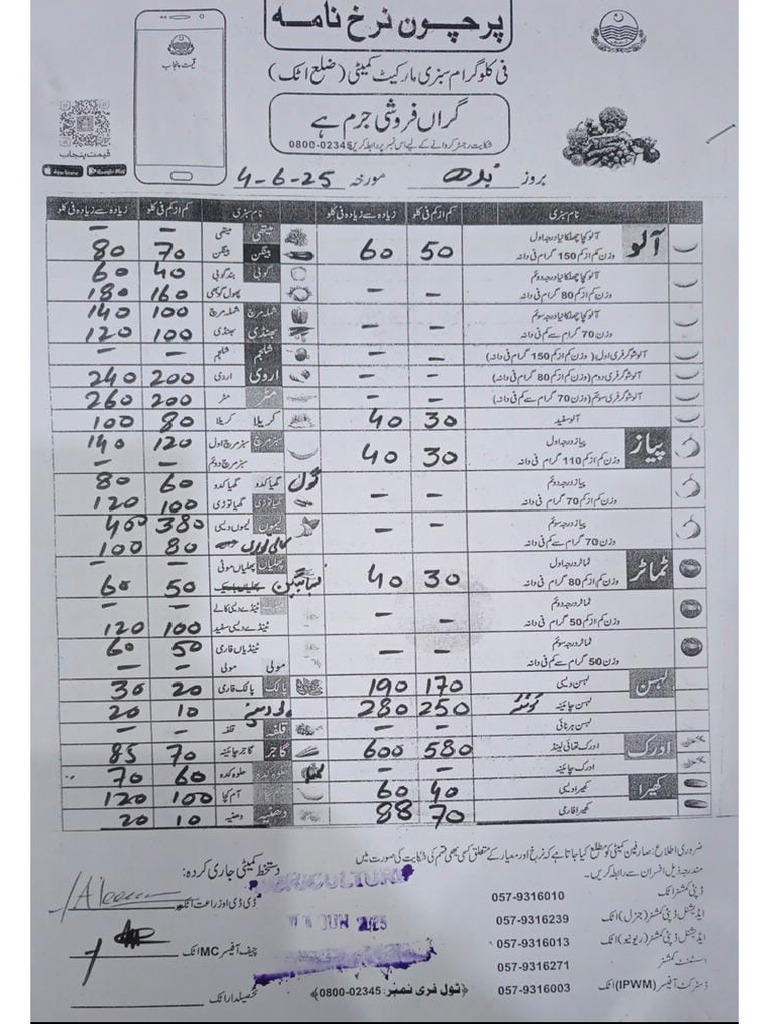 پرچون نرخ نامہ
فی کلوگرام سبزی مارکیٹ کمیٹی (ضلع اٹک)
گراں فروشی جرم ہے
شکایت رجسٹر کروانے کے لیے اس نمبر پر رابطہ کریں 0800-02345
قیمت پنجاب
قیمت پنجاب
App Store
Google Play
بروز بدھ مورخہ 4-6-25
نام سبزی کم از کم فی کلو زیادہ سے زیادہ فی کلو نام سبزی کم از کم فی کلو زیادہ سے زیادہ فی کلو
آلو آلو کچا چھلکا نیا درجہ اول
وزن کم از کم 150 گرام فی دانہ 50 60
آلو کچا چھلکا نیا درجہ دوئم
وزن کم از کم 80 گرام فی دانہ – –
آلو کچا چھلکا نیا درجہ سوئم
وزن 70 گرام سے کم فی دانہ – –
آلو شوگر فری اول (وزن کم از کم 150 گرام فی دانہ) – –
آلو شوگر فری دوم (وزن کم از کم 80 گرام فی دانہ) – –
آلو شوگر فری سوئم (وزن 70 گرام سے کم فی دانہ) – –
آلو سفید 30 40
پیاز پیاز درجہ اول
وزن کم از کم 110 گرام فی دانہ 30 40
پیاز درجہ دوئم
وزن کم از کم 70 گرام فی دانہ – –
پیاز درجہ سوئم
وزن 70 گرام سے کم فی دانہ – –
ٹماٹر ٹماٹر درجہ اول
وزن کم از کم 80 گرام فی دانہ 30 40
ٹماٹر درجہ دوئم
وزن کم از کم 50 گرام فی دانہ – –
ٹماٹر درجہ سوئم
وزن 50 گرام سے کم فی دانہ – –
لہسن لہسن دیسی 170 190
لہسن چائینہ 250 280
لہسن ہرنائی – –
ادرک ادرک تھائی لینڈ 580 600
ادرک چائینہ – –
کھیرا کھیرا دیسی 40 60
کھیرا فارمی 70 88
میتھی میتھی – –
بینگن بینگن 70 80
گوبی بند گوبی 40 60
پھول گوبھی 160 180
شملہ مرچ شملہ مرچ 100 140
بھنڈی بھنڈی 100 120
شلجم شلجم – –
اروی اروی 200 240
مٹر مٹر 200 260
کریلا کریلا 80 100
سبز مرچ سبز مرچ اول 120 140
سبز مرچ دوئم – –
گول گھیا کدو گھیا کدو 60 80
گھیا توری گھیا توڑی 100 120
لیموں لیموں دیسی 380 400
کالی توری 80 100
پھلیاں پھلیاں موٹی – –
50 60
ٹینڈے دیسی کالے – –
ٹینڈے دیسی سفید 100 120
ٹینڈیاں فارمی 50 60
مولی مولی – –
پالک پالک فارمی 20 30
10 20
قلفہ قلفہ – –
گاجر گاجر چائینہ 70 85
حلوہ کدو حلوہ کدو 60 70
آم کچا 100 120
دھنیہ دھنیہ 10 20
ضروری اطلاع: صارفین کمیٹی کو مطلع کیا جاتا ہے کہ نرخ اور معیار کے متعلق کسی بھی قسم کی شکایت کی صورت میں
مندرجہ ذیل افسران سے رابطہ کریں۔
ڈپٹی کمشنر اٹک 057-9316010
ایڈیشنل ڈپٹی کمشنر (جنرل) اٹک 057-9316239
ایڈیشنل ڈپٹی کمشنر (ریونیو) اٹک 057-9316013
اسسٹنٹ کمشنر 057-9316271
ڈسٹرکٹ آفیسر (IPWM) اٹک 057-9316003
دستخط کمیٹی جاری کردہ:
ڈی ڈی او زراعت اٹک
چیف آفیسر MC اٹک
تحصیلدار اٹک
JUN 2025
﴿ٹول فری نمبر: 0800-02345﴾